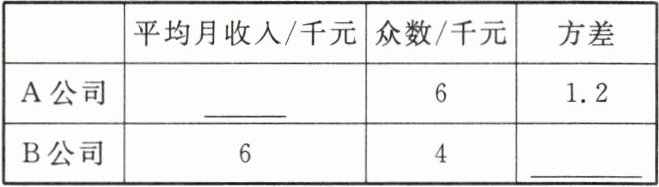 平均月收入/千元 众数/千元 方差
A公司 ____ 6 1.2
B公司 6 4 ____